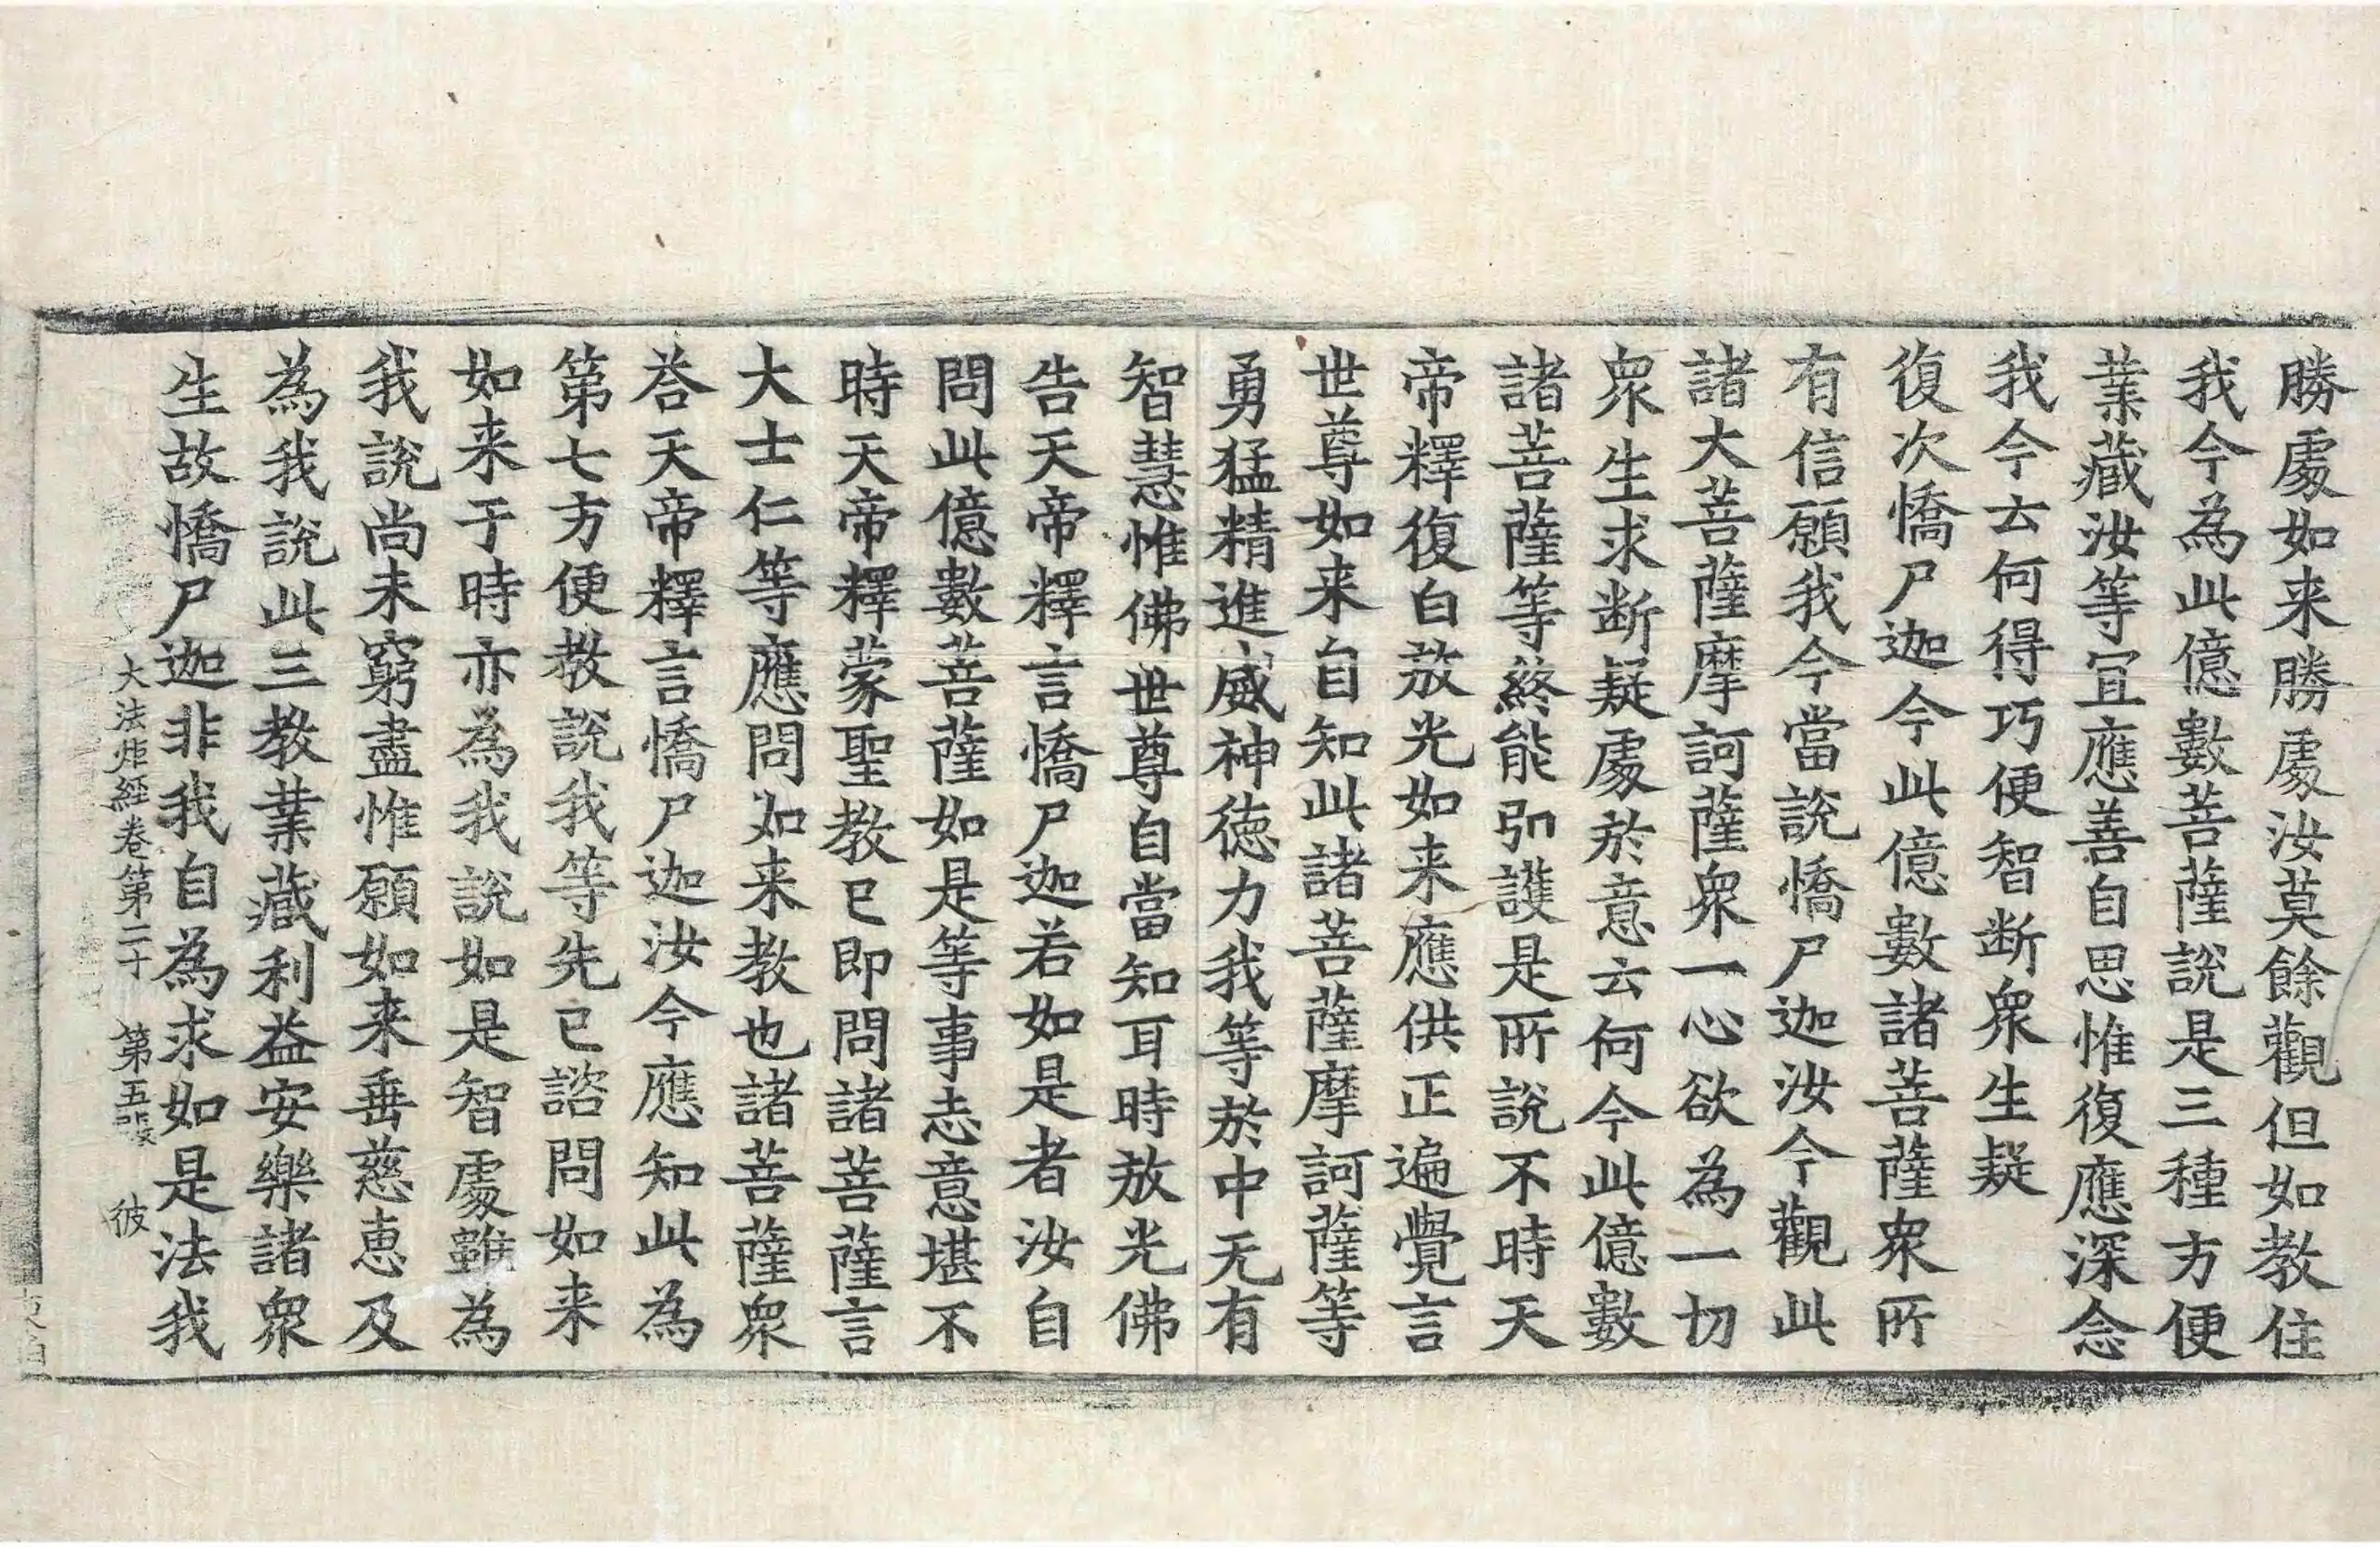 勝處如来勝處汝莫餘觀但如教住
我今為此億數菩薩說是三種方便
業藏汝等宜應善自思惟復應深念
我今去何得巧便智断衆生疑
復次憍尸迦今此億數諸菩薩衆所
有信願我今當說憍尸迦汝今觀此
諸大菩薩摩訶薩衆一心欲為一切
衆生求断疑處於意云何今此億數
諸菩薩等終能引護是所說不時天
帝釋復白放光如来應供正遍覺言
世尊如来自知此諸菩薩摩訶薩等
勇猛精進威神徳力我等於中无有
智慧惟佛世尊自當知耳時放光佛
告天帝釋言憍尸迦若如是者汝自
問此億數菩薩如是等事志意堪不
時天帝釋蒙聖教已即問諸菩薩言
大士仁等應問如来教也諸菩薩衆
荅天帝釋言憍尸迦汝今應知此為
第七方便教說我等先已諮問如来
如来于時亦為我說如是智處雖為
我說尚未窮盡惟願如来垂慈恵及
為我說此三教業藏利益安樂諸衆
生故憍尸迦非我自為求如是法我
大法炬経卷第二十 第五張 彼